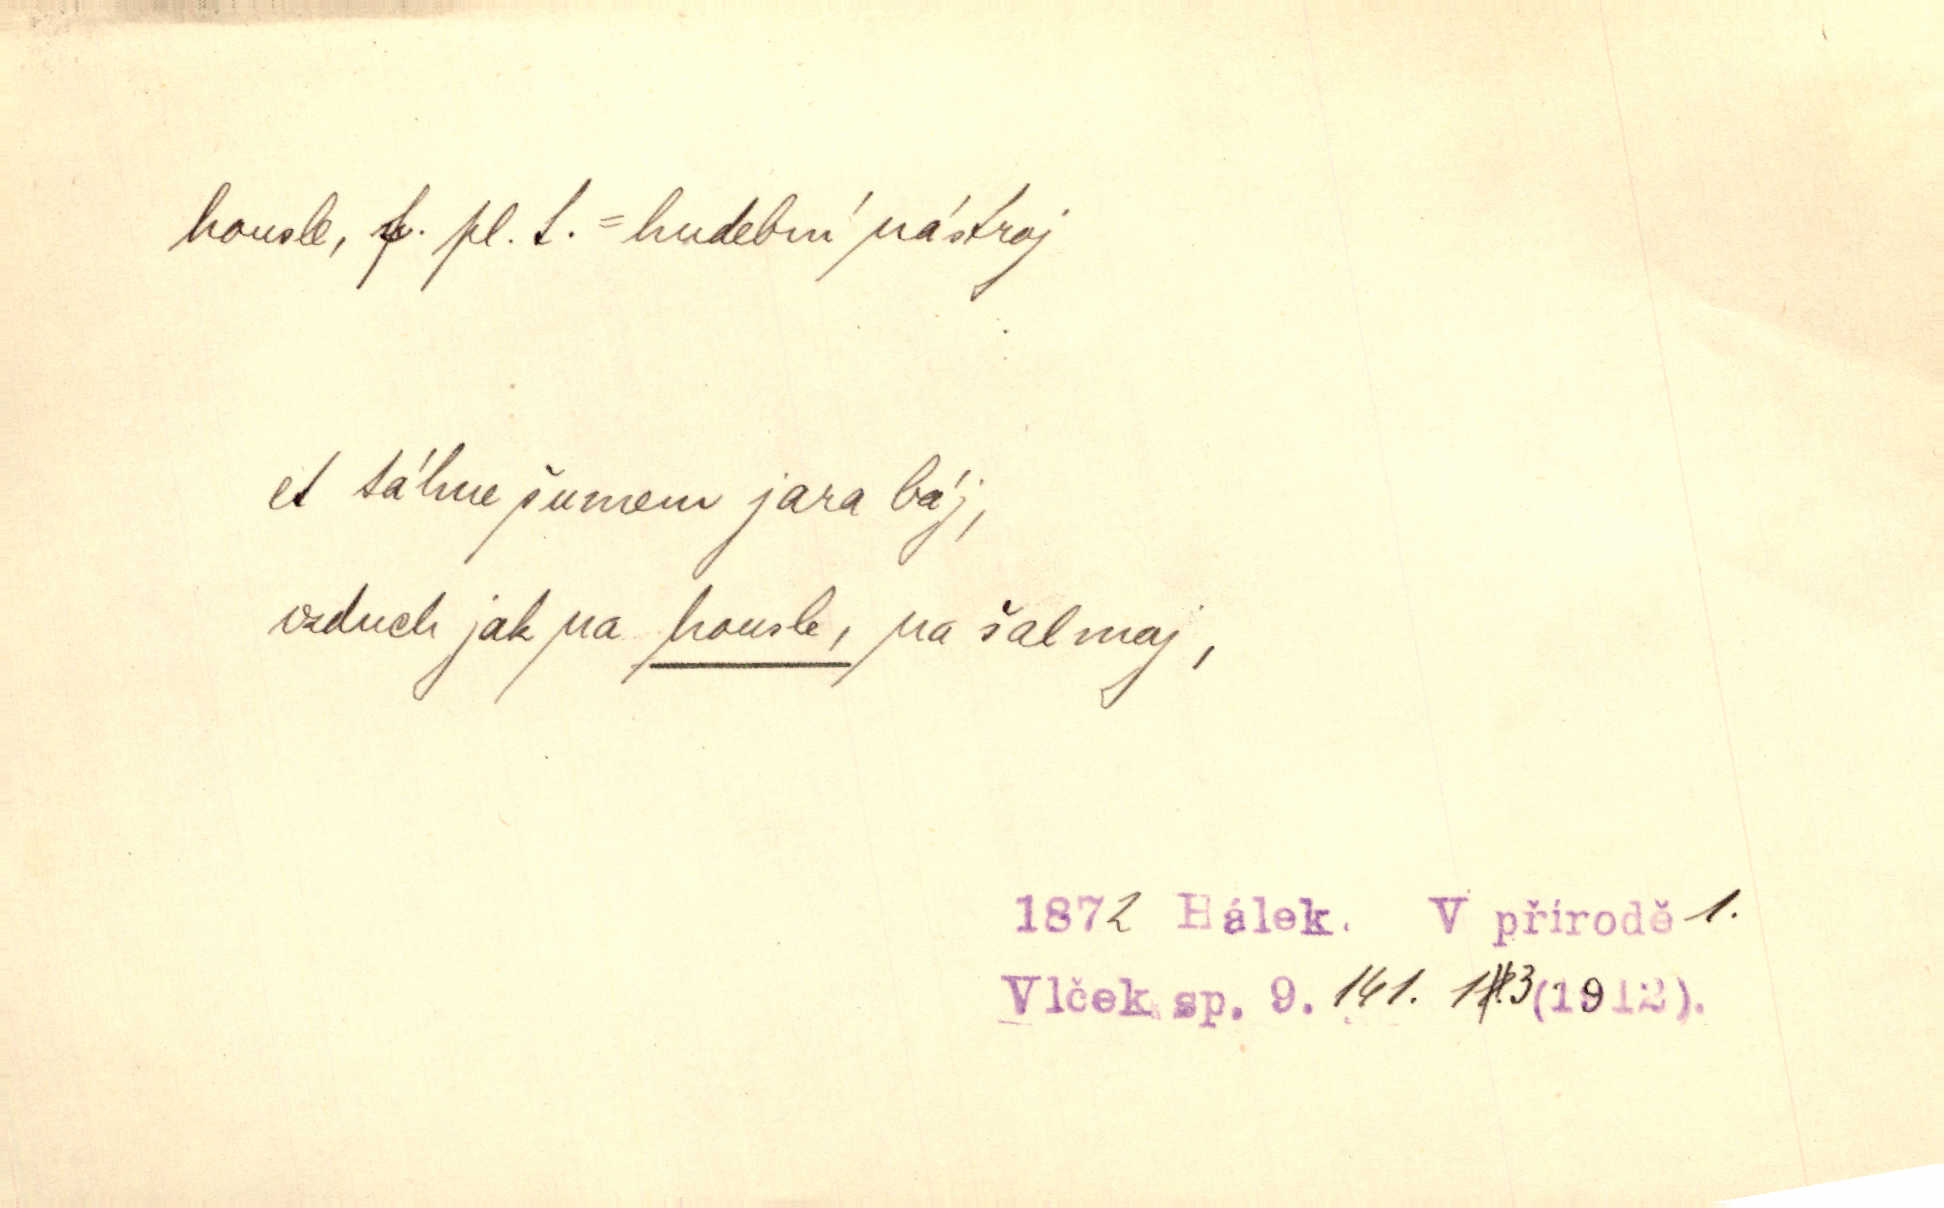 housle, f. pl. t. = hudební nástroj
A táhne šumem jara báj,
vzduch jak na housle, na šalmaj,
1872 Hálek. V přírodě 1.
Vlček sp. 9. 141. (1912).